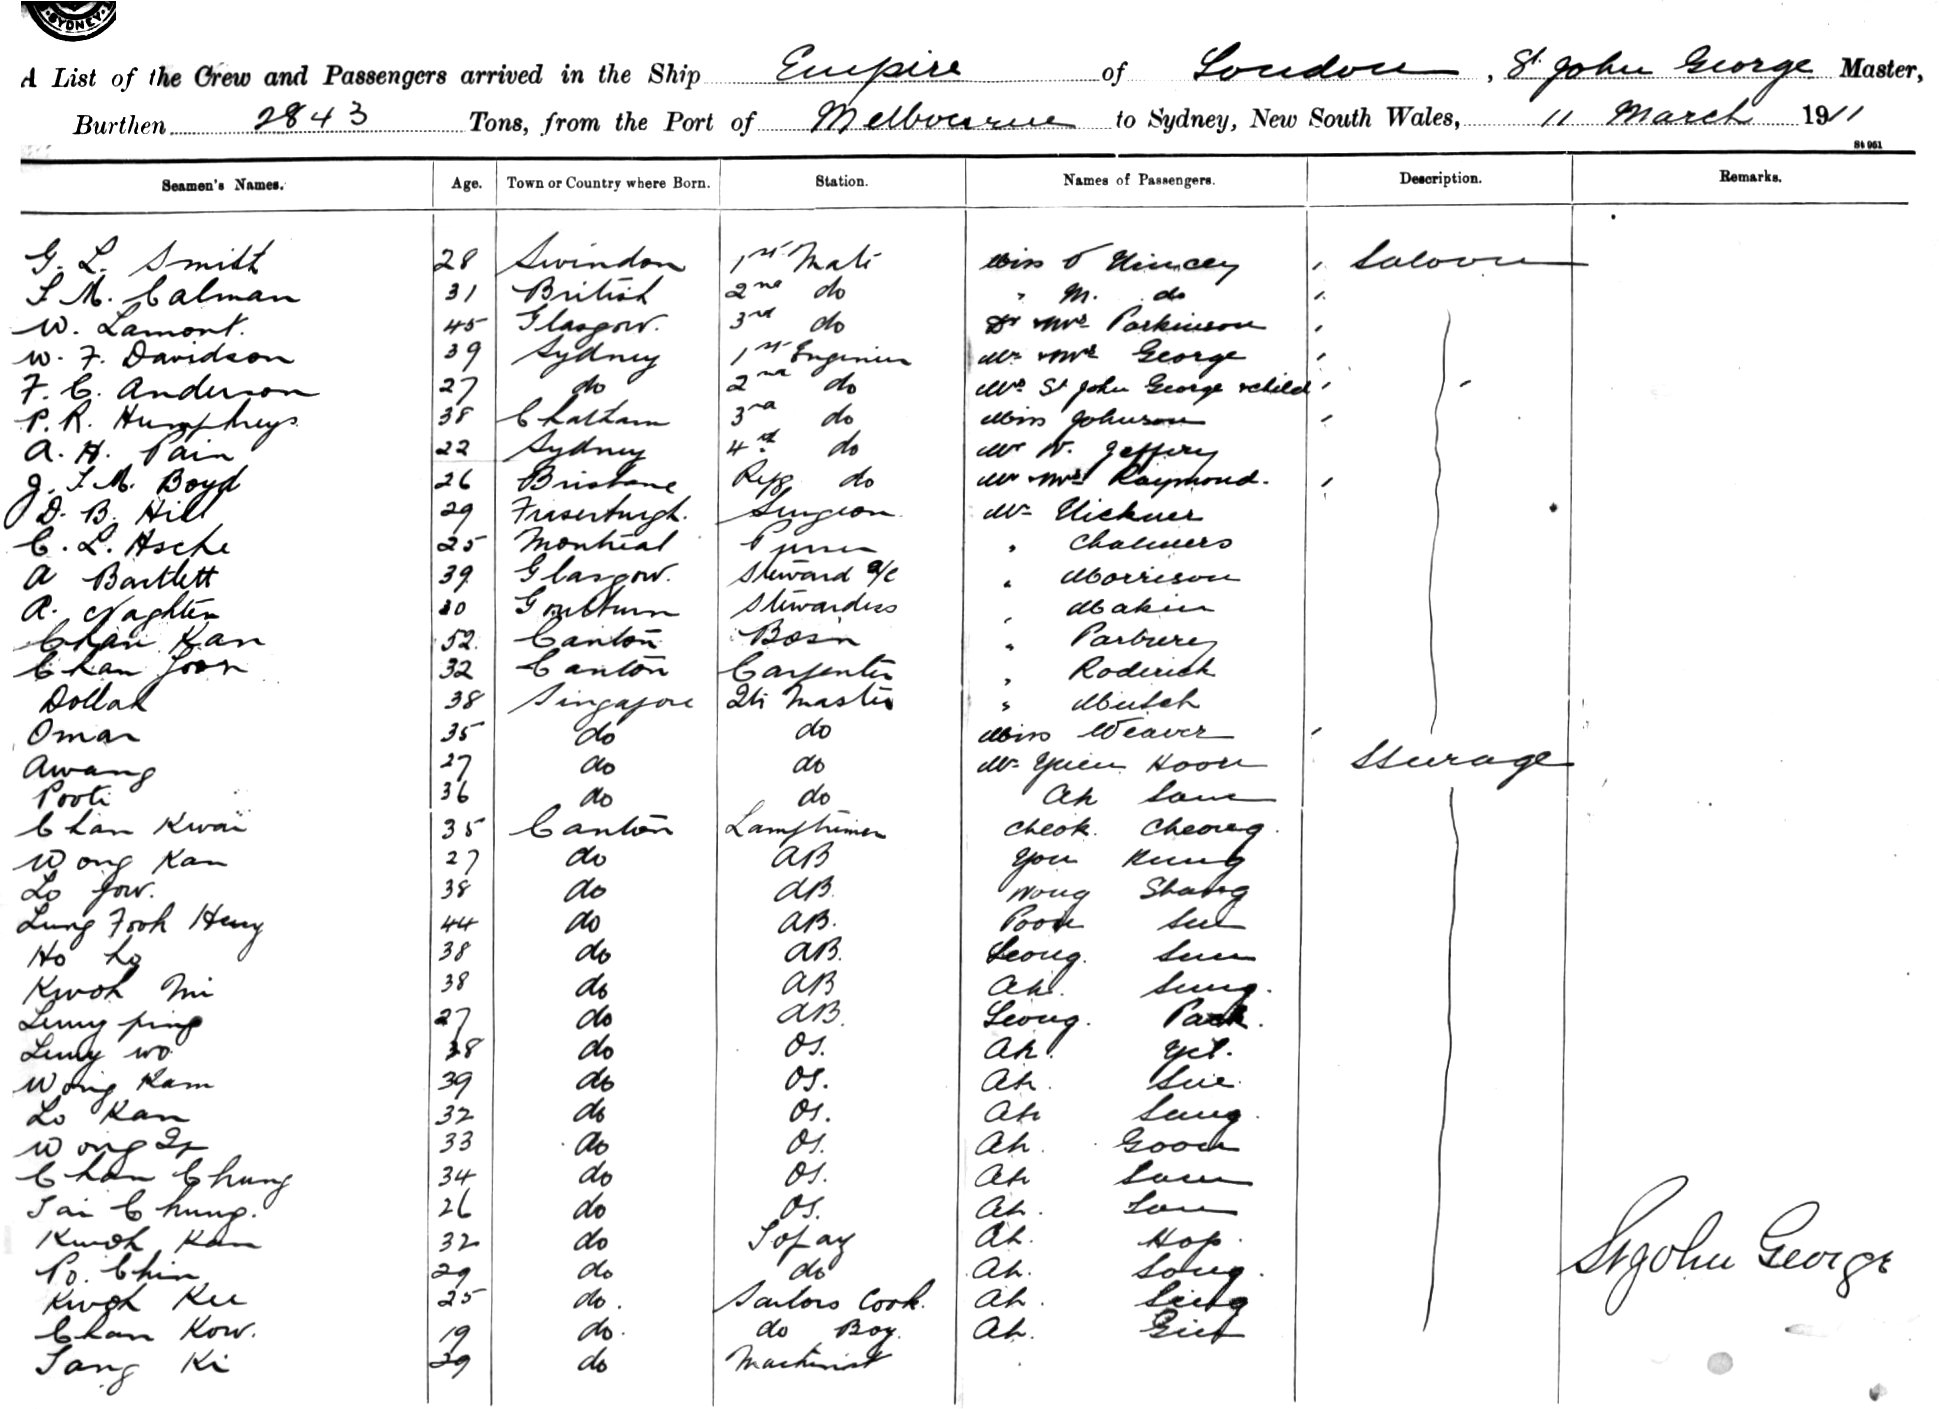 SYDNEY
A List of the Crew and Passengers arrived in the Ship Empire of London, St. John George Master,
Burthen 2843 Tons, from the Port of Melbourne to Sydney, New South Wales, 11 March 1911
St 961
Seamen's Names. Age. Town or Country where Born. Station. Names of Passengers. Description. Remarks.
G. L. Smith 28 Swindon 1st Mate Miss Hincey Saloon
M. Calman 31 British 2nd do " M. do
W. Lamont. 45 Glasgow. 3rd do Dr & Mrs Parkinson
W. F. Davidson 39 Sydney 1st Engineer Mr & Mrs George
F. C. Anderson 27 do 2nd do Mrs St John George & child
P. R. Humphreys 38 Chatham 3rd do Miss Johnson
A. H. Pain 22 Sydney 4th do Mr W. Jeffery
J. T. M. Boyd 26 Brisbane Refg do Mr & Mrs Raymond.
D. B. Hill 29 Fraserburgh. Surgeon Mr
C. L. Asche 25 Montreal Purser " Chalmers
A Bartlett 39 Glasgow. Steward " Morrison
A. Naghten 30 Goulburn Stewardess " Makin
Chan Kan 52 Canton Bosn " Parbury
Chan Joon 32 Canton Carpenter " Roderick
Dollah 38 Singapore Qtr Master " Mutch
Omar 35 do do Miss Weaver
Awang 27 do do Mr Yuen Hoon Steerage
Pooti 36 do do Ah Sam
Chan Kwai 35 Canton Lamptrimer Cheok Cheong.
Wong Kan 27 do AB You Kung
Lo Jow. 38 do AB. Wong Shang
Lung Fook Heng 44 do AB. Poon Sue
Ho Lo 38 do AB. Leong. Sun
Kwok Mi 38 do AB Ah. Sung.
Leung ping 27 do AB. Leong. Pack.
Leung wo 38 do OS. Ah. Yet.
Wong Kam 39 do OS. Ah. Sue.
Lo Kan 32 do OS. Ah Sang.
Wong 33 do OS. Ah. Goon
Chan Chung 34 do OS. Ah Sam
Tai Chung. 26 do OS. Ah. Lan
Kwok Kan 32 do Topay Ah. Hop.
Po. Chin 29 do do Ah. Song.
Kwok Kee 25 do. Sailors Cook. Ah. Sing
Chan Kow. 19 do. do Boy. Ah.
Tang Ki 29 do Machinist
St John George